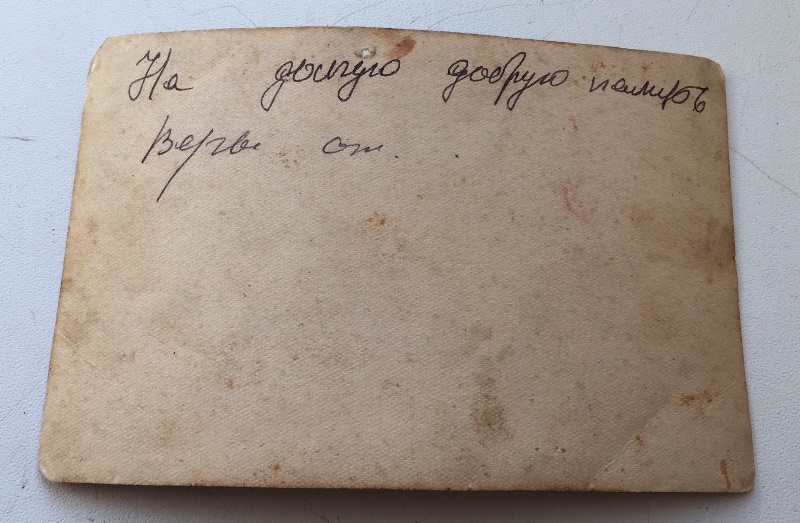 На долгую добрую память
Вере от . .